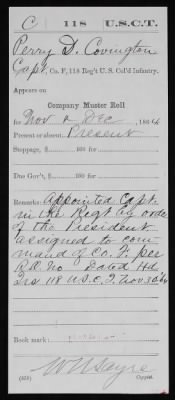 C | 118 | U.S.C.T.
Perry D. Covington
Capt, Co. F, 118 Reg't U. S. Col'd Infantry.
Appears on
Company Muster Roll
for Nov & Dec, 1864
Present or absent Present
Stoppage, $ 100 for
Due Gov't, $ 100 for
Remarks: Appointed Capt.
in the Regt by order
of the President
assigned to com-
mand of Co. F. per
R.O. No Dated Hd
Qrs 118 U.S.C.T. Nov 30/64
Book mark:
W N Sayre
(358) Copyist.